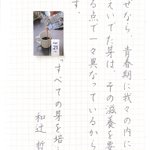 ぜなら、青春期に我々の内に
えいでた芽は、その滋養を要
る点で一々異なっているから
す。
「すべての芽を培
和辻 哲